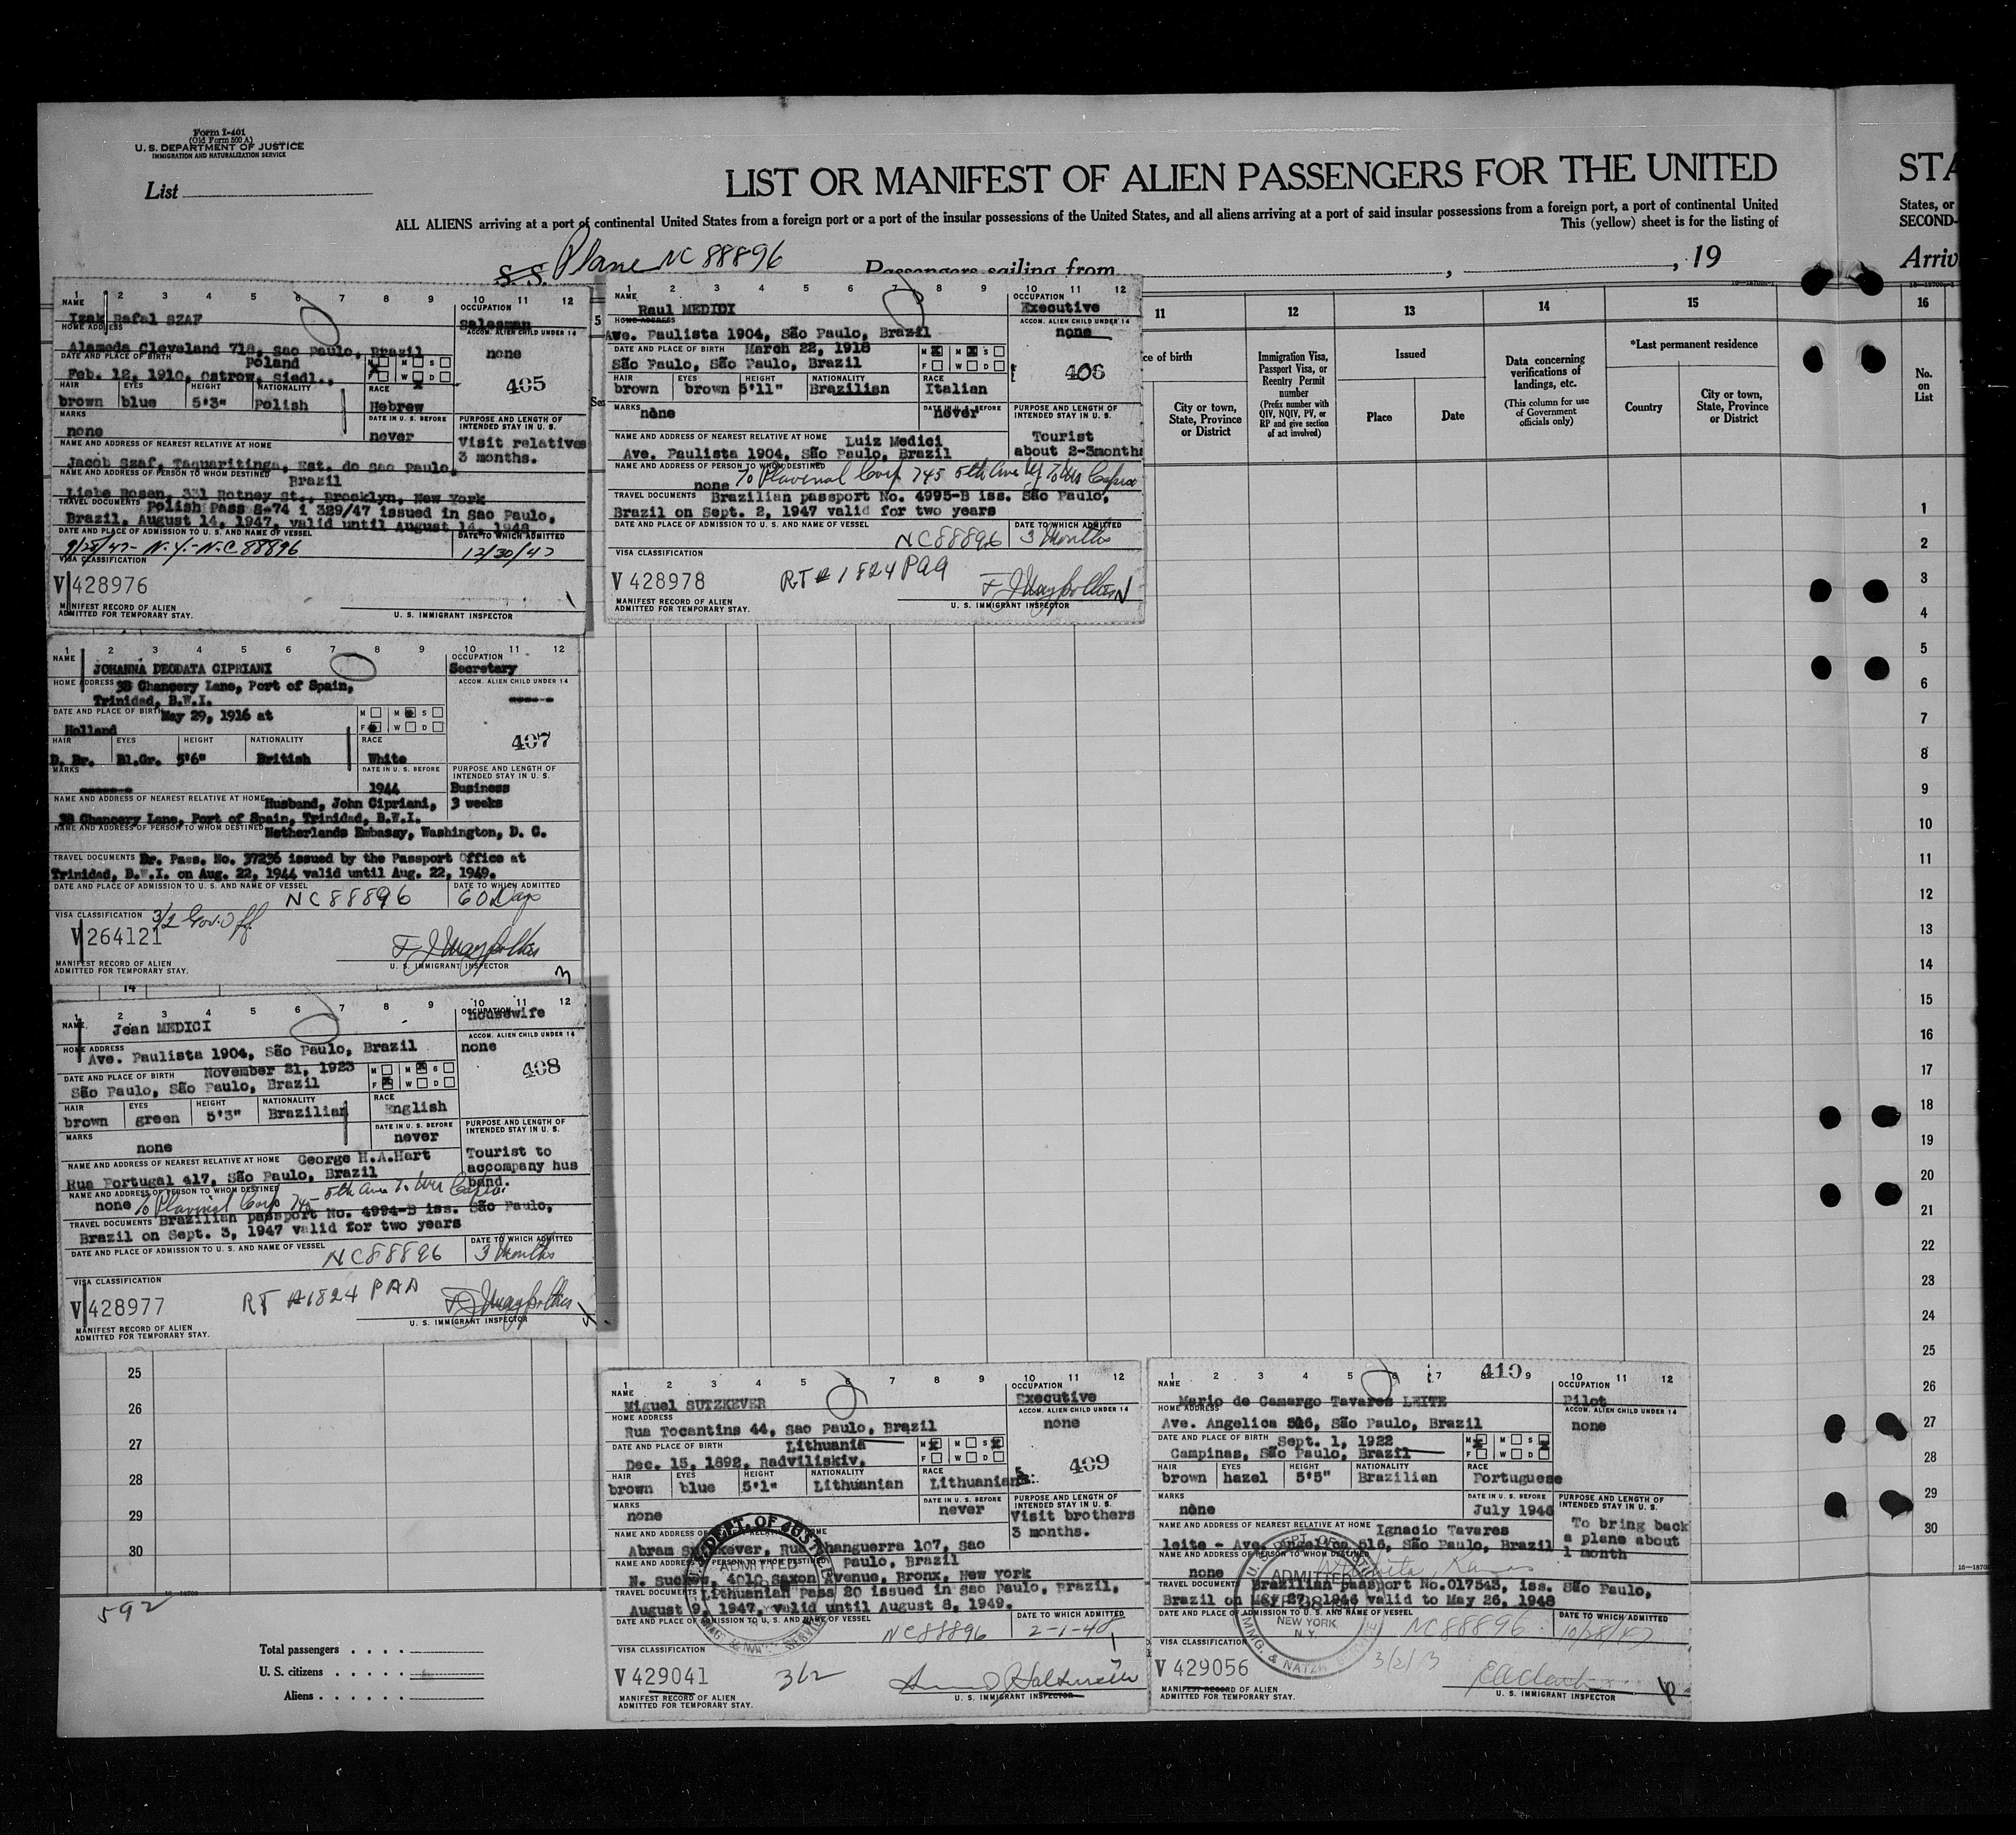 Form I-401
(Old Form 500 A)
U. S. DEPARTMENT OF JUSTICE
IMMIGRATION AND NATURALIZATION SERVICE
List
LIST OR MANIFEST OF ALIEN PASSENGERS FOR THE UNITED
STA
ALL ALIENS arriving at a port of continental United States from a foreign port or a port of the insular possessions of the United States, and all aliens arriving at a port of said insular possessions from a foreign port, a port of continental United
States, or
This (yellow) sheet is for the listing of
SECOND-
S. S. Plane NC 88896
Passengers sailing from , , 19
Arriv
1 2 3 4 5 6 7 8 9 10 11 12
NAME
Izak Rafal SZAF
OCCUPATION
Salesman
HOME ADDRESS
Alameda Cleveland 718, Sao Paulo, Brazil
ACCOM. ALIEN CHILD UNDER 14
none
DATE AND PLACE OF BIRTH
Poland
Feb. 12, 1910, Ostrow, Siedl.,
M M S
F W D
405
HAIR EYES HEIGHT NATIONALITY RACE
brown blue 5'3" Polish Hebrew
MARKS
none
DATE IN U. S. BEFORE
never
PURPOSE AND LENGTH OF INTENDED STAY IN U. S.
Visit relatives
3 months.
NAME AND ADDRESS OF NEAREST RELATIVE AT HOME
Jacob Szaf, Taquaritinga, Est. do Sao Paulo,
Brazil
NAME AND ADDRESS OF PERSON TO WHOM DESTINED
Liebe Rosen, 331 Rotney St., Brooklyn, New York
TRAVEL DOCUMENTS Polish Pass S-74 i 329/47 issued in Sao Paulo,
Brazil, August 14, 1947, valid until August 14, 1948
DATE AND PLACE OF ADMISSION TO U. S. AND NAME OF VESSEL
DATE TO WHICH ADMITTED
9/28/47- N.Y.- N.C 88896
12/30/47
VISA CLASSIFICATION
V 428976
MANIFEST RECORD OF ALIEN
ADMITTED FOR TEMPORARY STAY.
U. S. IMMIGRANT INSPECTOR
1 2 3 4 5 6 7 8 9 10 11 12
NAME
Raul MEDIDI
OCCUPATION
Executive
HOME ADDRESS
Ave. Paulista 1904, São Paulo, Brazil
ACCOM. ALIEN CHILD UNDER 14
none
DATE AND PLACE OF BIRTH March 22, 1918
São Paulo, São Paulo, Brazil
M M S
F W D
406
HAIR EYES HEIGHT NATIONALITY RACE
brown brown 5'11" Brazilian Italian
MARKS
none
DATE IN U. S. BEFORE
never
PURPOSE AND LENGTH OF INTENDED STAY IN U. S.
Tourist
about 2-3months
NAME AND ADDRESS OF NEAREST RELATIVE AT HOME Luiz Medici
Ave. Paulista 1904, São Paulo, Brazil
NAME AND ADDRESS OF PERSON TO WHOM DESTINED
none To Plavinal Corp 745 5th Ave
TRAVEL DOCUMENTS Brazilian passport No. 4995-B iss. São Paulo,
Brazil on Sept. 2, 1947 valid for two years
DATE AND PLACE OF ADMISSION TO U. S. AND NAME OF VESSEL
DATE TO WHICH ADMITTED
NC88896
3 Months
VISA CLASSIFICATION
V 428978
RT # 1824 PAA
MANIFEST RECORD OF ALIEN
ADMITTED FOR TEMPORARY STAY.
U. S. IMMIGRANT INSPECTOR
11
ce of birth
City or town, State, Province or District
12
Immigration Visa, Passport Visa, or Reentry Permit number
(Prefix number with QIV, NQIV, PV, or RP and give section of act involved)
13
Issued
Place Date
14
Data concerning verifications of landings, etc.
(This column for use of Government officials only)
15
*Last permanent residence
Country
City or town, State, Province or District
16
No. on List
1
2
3
4
5
6
7
8
9
10
11
12
13
14
15
16
17
18
19
20
21
22
23
24
25
26
27
28
29
30
1 2 3 4 5 6 7 8 9 10 11 12
NAME
JOHANNA DEODATA CIPRIANI
OCCUPATION
Secretary
HOME ADDRESS 3B Chancery Lane, Port of Spain,
Trinidad, B.W.I.
ACCOM. ALIEN CHILD UNDER 14
DATE AND PLACE OF BIRTH May 29, 1916 at
Holland
M M S
F W D
407
HAIR EYES HEIGHT NATIONALITY RACE
D. Br. Bl.Gr. 5'6" British White
MARKS
DATE IN U. S. BEFORE
1944
PURPOSE AND LENGTH OF INTENDED STAY IN U. S.
Business
3 weeks
NAME AND ADDRESS OF NEAREST RELATIVE AT HOME Husband, John Cipriani,
3B Chancery Lane, Port of Spain, Trinidad, B.W.I.
NAME AND ADDRESS OF PERSON TO WHOM DESTINED Netherlands Embassy, Washington, D. C.
TRAVEL DOCUMENTS Br. Pass. No. 37236 issued by the Passport Office at
Trinidad, B.W.I. on Aug. 22, 1944 valid until Aug. 22, 1949.
DATE AND PLACE OF ADMISSION TO U. S. AND NAME OF VESSEL
DATE TO WHICH ADMITTED
NC88896
60 Days
VISA CLASSIFICATION 3/2 Gov. Off.
V 264121
MANIFEST RECORD OF ALIEN
ADMITTED FOR TEMPORARY STAY.
U. S. IMMIGRANT INSPECTOR
3
14
1 2 3 4 5 6 7 8 9 10 11 12
NAME
Jean MEDICI
OCCUPATION
housewife
HOME ADDRESS
Ave. Paulista 1904, São Paulo, Brazil
ACCOM. ALIEN CHILD UNDER 14
none
DATE AND PLACE OF BIRTH November 21, 1923
São Paulo, São Paulo, Brazil
M M S
F W D
408
HAIR EYES HEIGHT NATIONALITY RACE
brown green 5'3" Brazilian English
MARKS
none
DATE IN U. S. BEFORE
never
PURPOSE AND LENGTH OF INTENDED STAY IN U. S.
Tourist to
accompany hus
band.
NAME AND ADDRESS OF NEAREST RELATIVE AT HOME George H.A.Hart
Rua Portugal 417, São Paulo, Brazil
NAME AND ADDRESS OF PERSON TO WHOM DESTINED
none To Plavinal Corp 745 5th Ave
TRAVEL DOCUMENTS Brazilian passport No. 4994-B iss. São Paulo,
Brazil on Sept. 3, 1947 valid for two years
DATE AND PLACE OF ADMISSION TO U. S. AND NAME OF VESSEL
DATE TO WHICH ADMITTED
NC88896
3 Months
VISA CLASSIFICATION
V 428977
RT #1824 PAA
MANIFEST RECORD OF ALIEN
ADMITTED FOR TEMPORARY STAY.
U. S. IMMIGRANT INSPECTOR
25
26
27
28
29
30
592
Total passengers
U. S. citizens
Aliens
1 2 3 4 5 6 7 8 9 10 11 12
NAME
Miguel SUTZKEVER
OCCUPATION
Executive
HOME ADDRESS
Rua Tocantins 44, Sao Paulo, Brazil
ACCOM. ALIEN CHILD UNDER 14
none
DATE AND PLACE OF BIRTH Lithuania
Dec. 15, 1892, Radviliskiv.
M M S
F W D
409
HAIR EYES HEIGHT NATIONALITY RACE
brown blue 5'1" Lithuanian Lithuanian
MARKS
none
DATE IN U. S. BEFORE
never
PURPOSE AND LENGTH OF INTENDED STAY IN U. S.
Visit brothers
3 months.
NAME AND ADDRESS OF NEAREST RELATIVE AT HOME
Abram Sutzkever, Rua Anhanguerra 107, Sao
NAME AND ADDRESS OF PERSON TO WHOM DESTINED Paulo, Brazil
N. Suckew, 4010 Saxon Avenue, Bronx, New York
TRAVEL DOCUMENTS Lithuanian Pass 20 issued in Sao Paulo, Brazil,
August 9, 1947, valid until August 8, 1949.
DATE AND PLACE OF ADMISSION TO U. S. AND NAME OF VESSEL
DATE TO WHICH ADMITTED
NC88896
2-1-48
VISA CLASSIFICATION
V 429041
3/2
MANIFEST RECORD OF ALIEN
ADMITTED FOR TEMPORARY STAY.
U. S. IMMIGRANT INSPECTOR
U. S. DEPT. OF JUSTICE
ADMITTED
IMMG. & NATZ. SERVICE
410
1 2 3 4 5 6 7 8 9 10 11 12
NAME
Mario de Camargo Tavares LEITE
OCCUPATION
Pilot
HOME ADDRESS
Ave. Angelica 516, São Paulo, Brazil
ACCOM. ALIEN CHILD UNDER 14
none
DATE AND PLACE OF BIRTH Sept. 1, 1922
Campinas, São Paulo, Brazil
M M S
F W D
HAIR EYES HEIGHT NATIONALITY RACE
brown hazel 5'5" Brazilian Portuguese
MARKS
none
DATE IN U. S. BEFORE
July 1946
PURPOSE AND LENGTH OF INTENDED STAY IN U. S.
To bring back
a plane about
1 month
NAME AND ADDRESS OF NEAREST RELATIVE AT HOME Ignacio Tavares
leite - Ave. Angelica 516, São Paulo, Brazil
NAME AND ADDRESS OF PERSON TO WHOM DESTINED
none
TRAVEL DOCUMENTS Brazilian passport No.017543, iss. São Paulo,
Brazil on May 27, 1946 valid to May 26, 1948
DATE AND PLACE OF ADMISSION TO U. S. AND NAME OF VESSEL
DATE TO WHICH ADMITTED
NC88896
10/28/47
VISA CLASSIFICATION
V 429056
3/2/3
MANIFEST RECORD OF ALIEN
ADMITTED FOR TEMPORARY STAY.
U. S. IMMIGRANT INSPECTOR
ADMITTED
NEW YORK
N.Y.
IMMG. & NATZ.